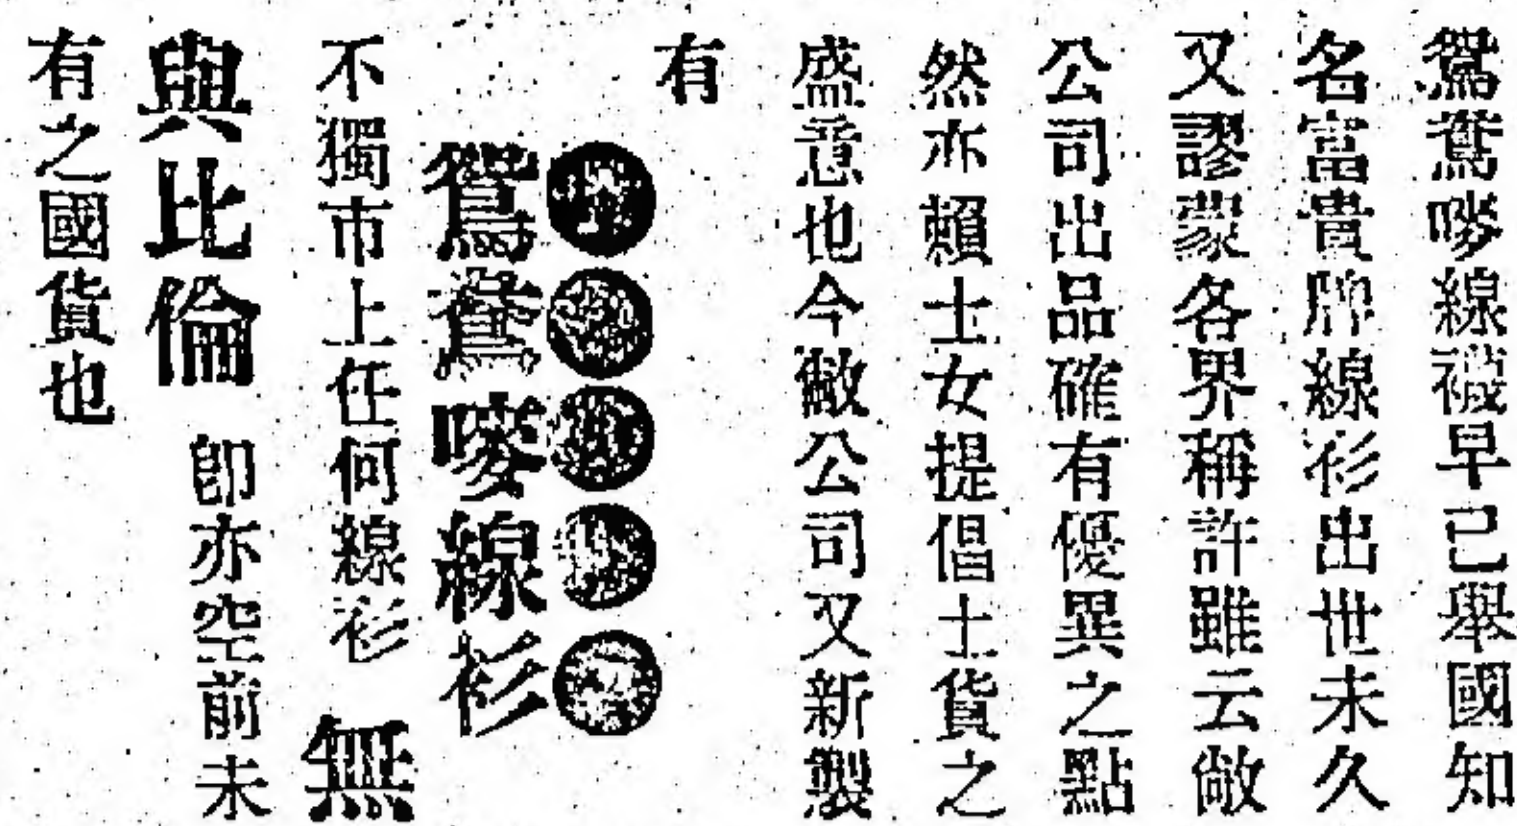 鴛鴦嘜線襪早已舉國知
名富貴牌線衫出世未久
又謬蒙各界稱許雖云敝
公司出品確有優異之點
然亦賴士女提倡土貨之
盛意也今敝公司又新製
有
鴛鴦嘜線衫
不獨市上任何線衫 無
與比倫 即亦空前未
有之國貨也